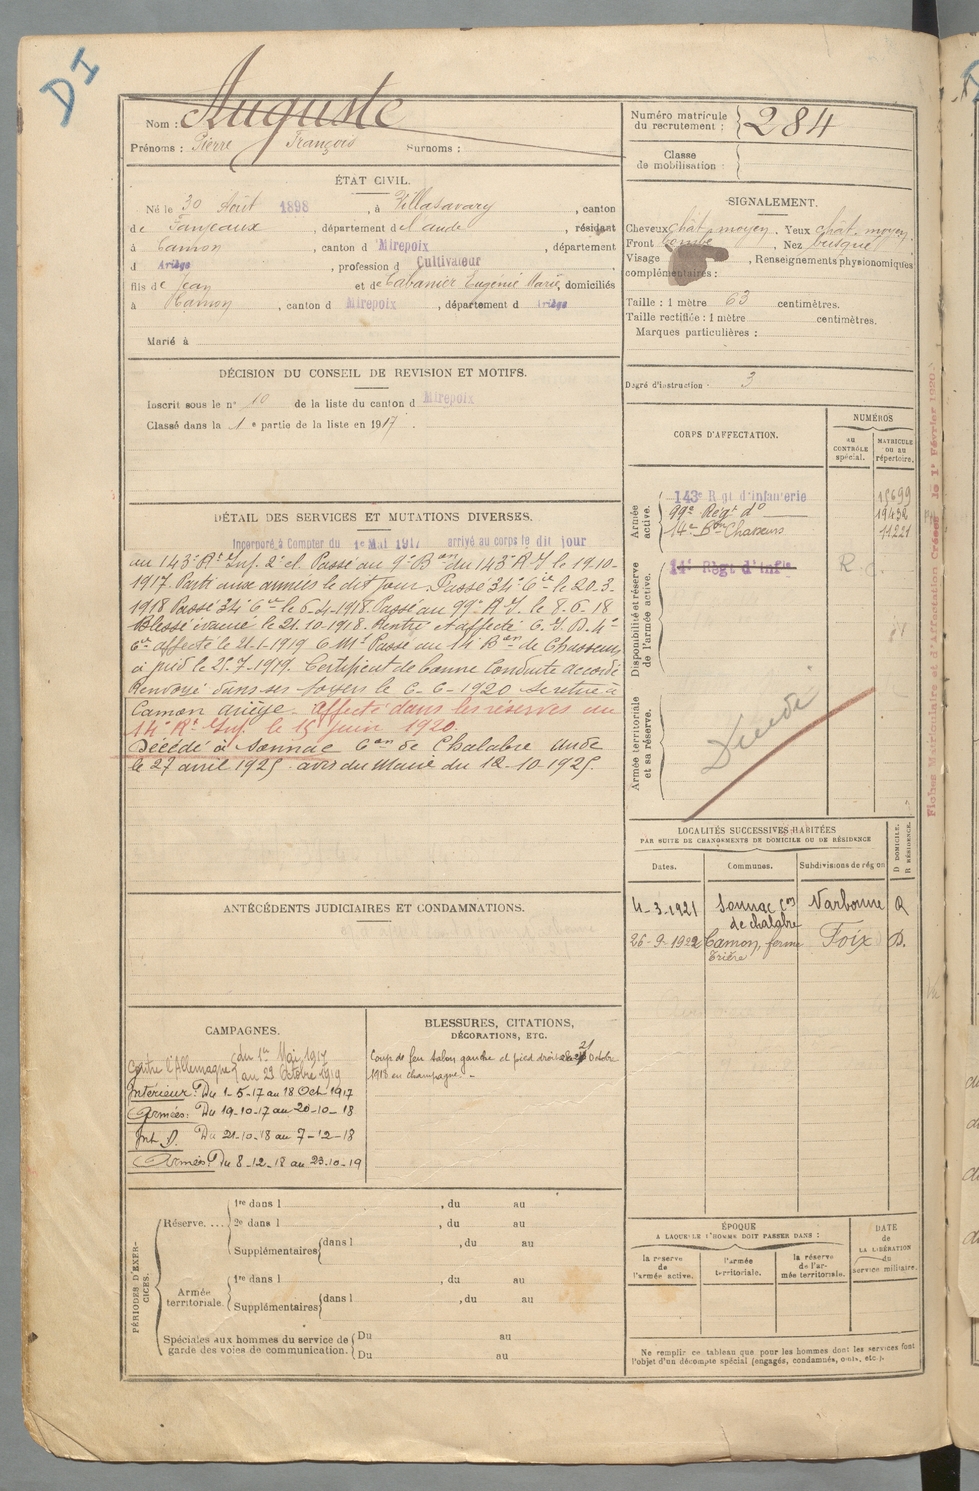 DI
Nom : Auguste
Prénoms : Pierre François Surnoms :
Numéro matricule du recrutement : 284
Classe de mobilisation :
ÉTAT CIVIL.
Né le 30 Août 1898, à Villasavary, canton
de Fanjeaux, département de l'aude, résidant
à Camon, canton d Mirepoix, département
d Ariège, profession d Cultivateur
fils de Jean et de Cabanier Eugénie Marie, domiciliés
à Camon, canton d Mirepoix, département d Ariège
Marié à
SIGNALEMENT.
Cheveux chât moyen. Yeux chât. moyen.
Front bombé, Nez busqué
Visage , Renseignements physionomiques
complémentaires :
Taille : 1 mètre 63 centimètres.
Taille rectifiée : 1 mètre centimètres.
Marques particulières :
Degré d'instruction : 3
DÉCISION DU CONSEIL DE REVISION ET MOTIFS.
Inscrit sous le n° 10 de la liste du canton d Mirepoix
Classé dans la 1e partie de la liste en 1917.
DÉTAIL DES SERVICES ET MUTATIONS DIVERSES.
Incorporé à Compter du 1er Mai 1917 arrivé au corps le dit jour
au 143e Rt Inf. 2e cl. Passé au 9e Bon du 143e R.I le 19-10-
1917. Parti aux armées le dit jour. Passé 34e Cie le 20-3-
1918 Passé 34 Cie le 6-4-1918. Passé au 99e R.I. le 8-6-18
Blessé évacué le 21-10-1918. Rentré et affecté C.I.D. 4e
Cie affecté le 21-1-1919 C Mt Passé au 14 Bon de Chasseurs
à pied le 25-7-1919. Certificat de bonne Conduite accordé
Renvoyé dans ses foyers le 6-6-1920 se retire à
Camon ariège. Affecté dans les réserves au
14e Rt Inf. le 15 juin 1920.
Décédé à Sonnac Con de Chalabre aude
le 27 avril 1925. avis du Maire du 12-10-1925.
CORPS D'AFFECTATION.
NUMÉROS
AU CONTRÔLE spécial.
MATRICULE ou au répertoire.
Armée active.
143e Rgt d'infanterie 15699
99e Régt do 19432
14e Bon Chasseurs 11221
Disponibilité et réserve de l'armée active.
14e Régt d'Infie
Armée territoriale et sa réserve.
Décédé
Fiches Matriculaire et d'Affectation Créées le 1er Février 1920
LOCALITÉS SUCCESSIVES HABITÉES
PAR SUITE DE CHANGEMENTS DE DOMICILE OU DE RÉSIDENCE
Dates. Communes. Subdivisions de région D DOMICILE. R RÉSIDENCE.
4-3-1921 Sonnac Con de chalabre Narbonne R
26-9-1922 Camon, ferme Foix D.
ANTÉCÉDENTS JUDICIAIRES ET CONDAMNATIONS.
CAMPAGNES.
Contre l'Allemagne du 1er Mai 1917
au 23 Octobre 1919
Intérieur: Du 1-5-17 au 18 Oct 1917
Armées: Du 19-10-17 au 20-10-18
Int. D. Du 21-10-18 au 7-12-18
Armées: Du 8-12-18 au 23-10-19
BLESSURES, CITATIONS,
DÉCORATIONS, ETC.
Coup de feu talon gauche et pied droit le 21 Octobre
1918 en champagne.
PÉRIODES D'EXERCICES.
Réserve. ... 1re dans l , du au
2e dans l , du au
Supplémentaires dans l , du au
Armée territoriale. 1re dans l , du au
Supplémentaires dans l , du au
Spéciales aux hommes du service de garde des voies de communication. Du au
Du au
ÉPOQUE
A LAQUELLE L'HOMME DOIT PASSER DANS :
la réserve de l'armée active.
l'armée territoriale.
la réserve de l'armée territoriale.
DATE de LA LIBÉRATION du service militaire.
Ne remplir ce tableau que pour les hommes dont les services font
l'objet d'un décompte spécial (engagés, condamnés, omis, etc.).